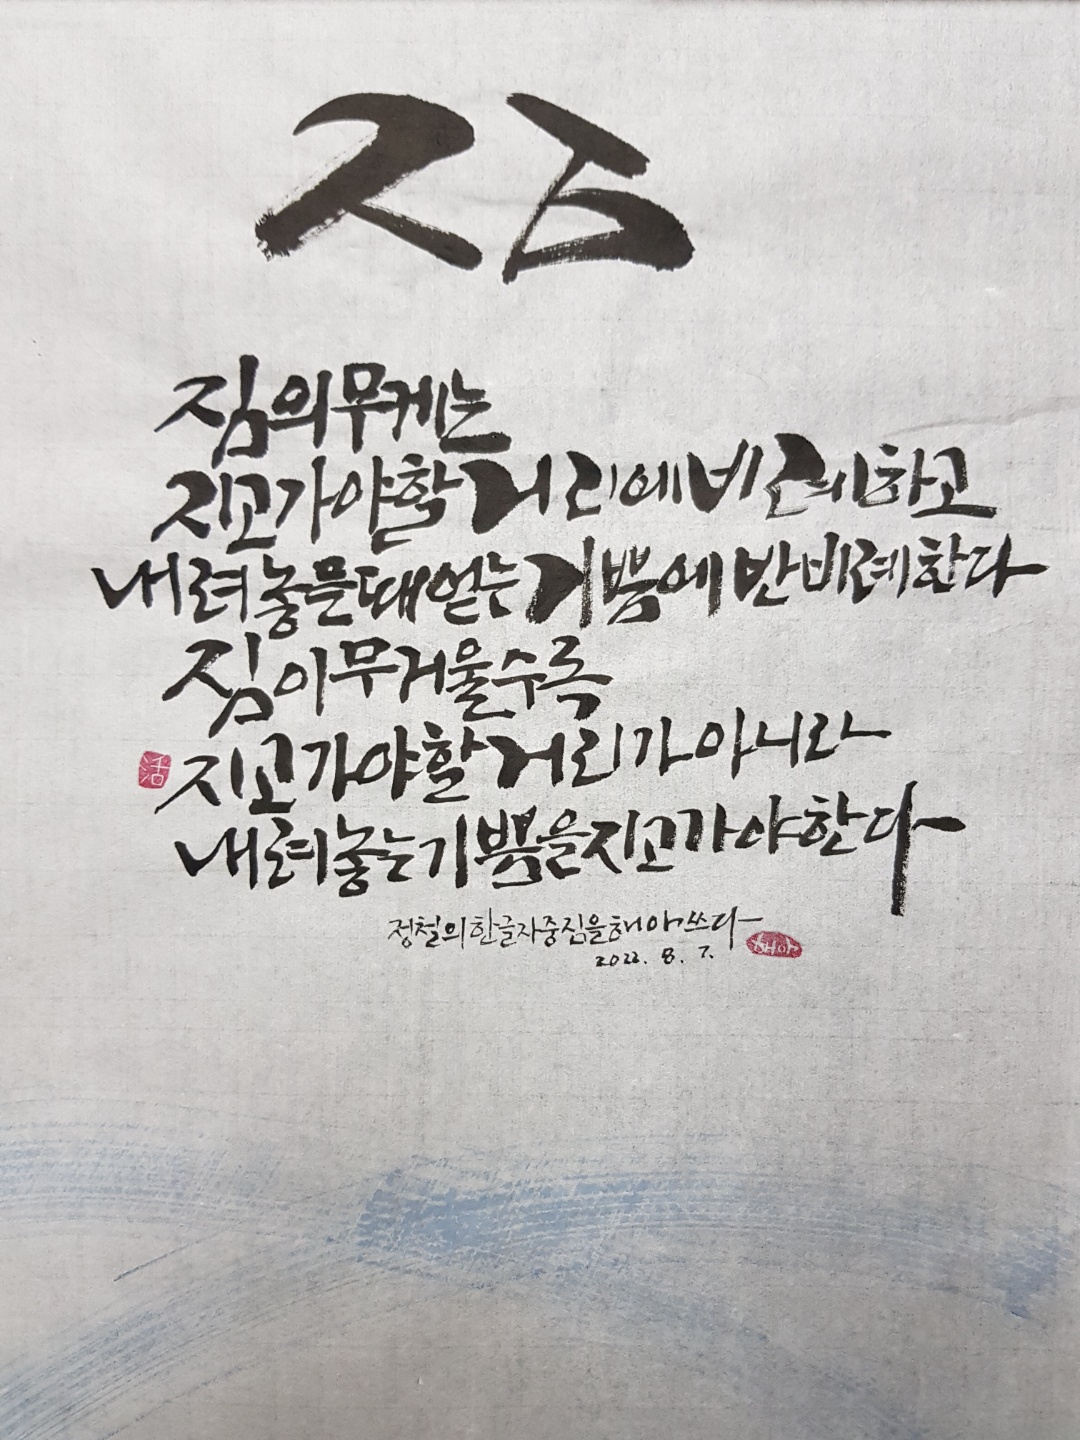 짐
짐의 무게는
지고 가야 할 거리에 비례하고
내려놓을 때 얻는 기쁨에 반비례한다
짐이 무거울수록
지고 가야 할 거리가 아니라
내려놓는 기쁨을 지고 가야 한다
정철의 한글자 중 짐을 해아 쓰다
2022. 8. 7.
해아